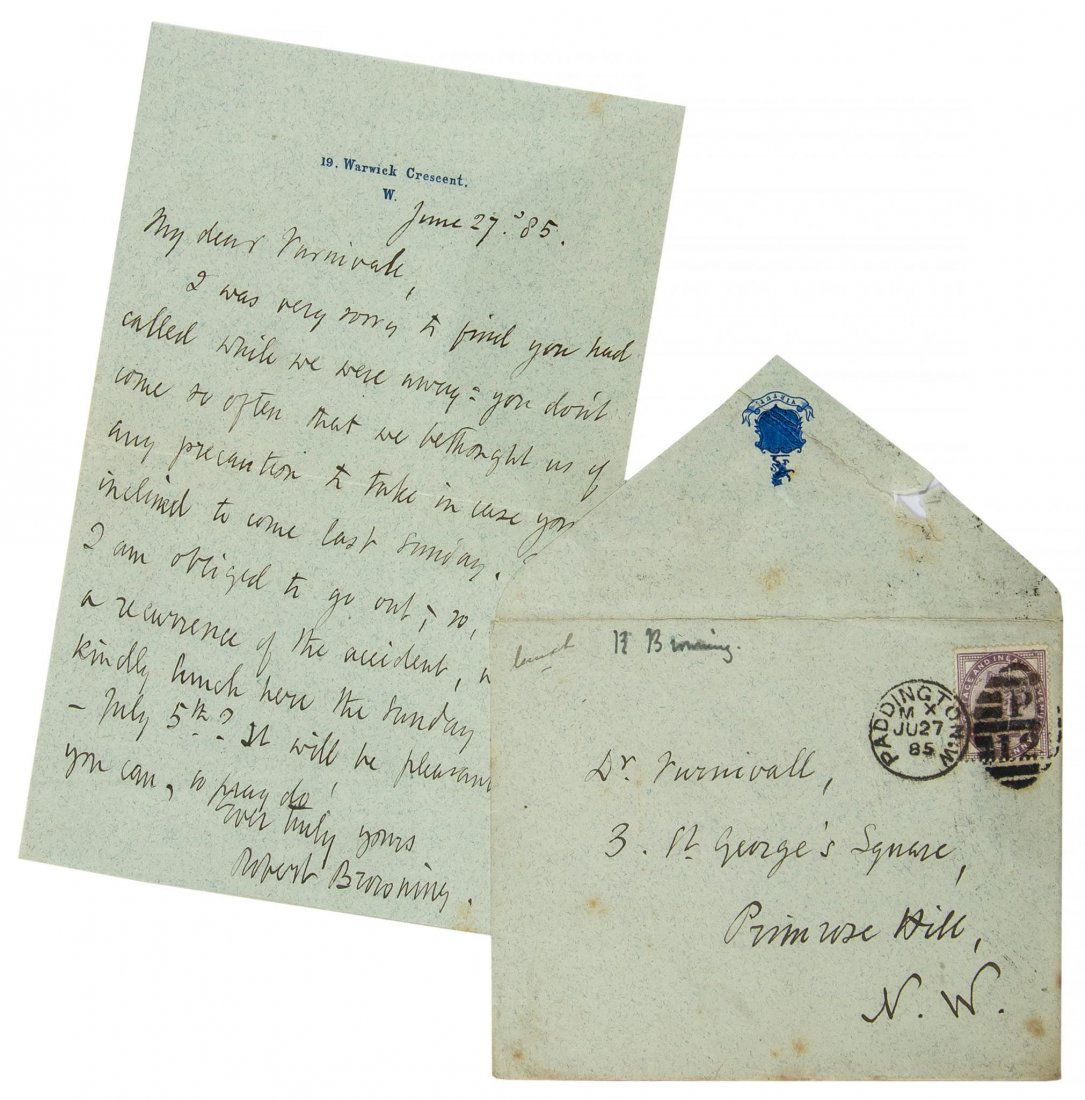 19. Warwick Crescent.
W.
June 27. '85.
My dear Furnivall,
I was very sorry to find you had
called while we were away: you don't
come so often that we bethought us of
any precaution to take in case you
inclined to come last Sunday.
I am obliged to go out, so,
a recurrence of the accident,
kindly lunch here the Sunday
– July 5th? It will be pleasant
you can, so pray do!
Ever truly yours
Robert Browning.
R Browning.
PADDINGTON.W
M X
JU27
85
P
Dr. Furnivall,
3. St. George's Square,
Primrose Hill,
N. W.